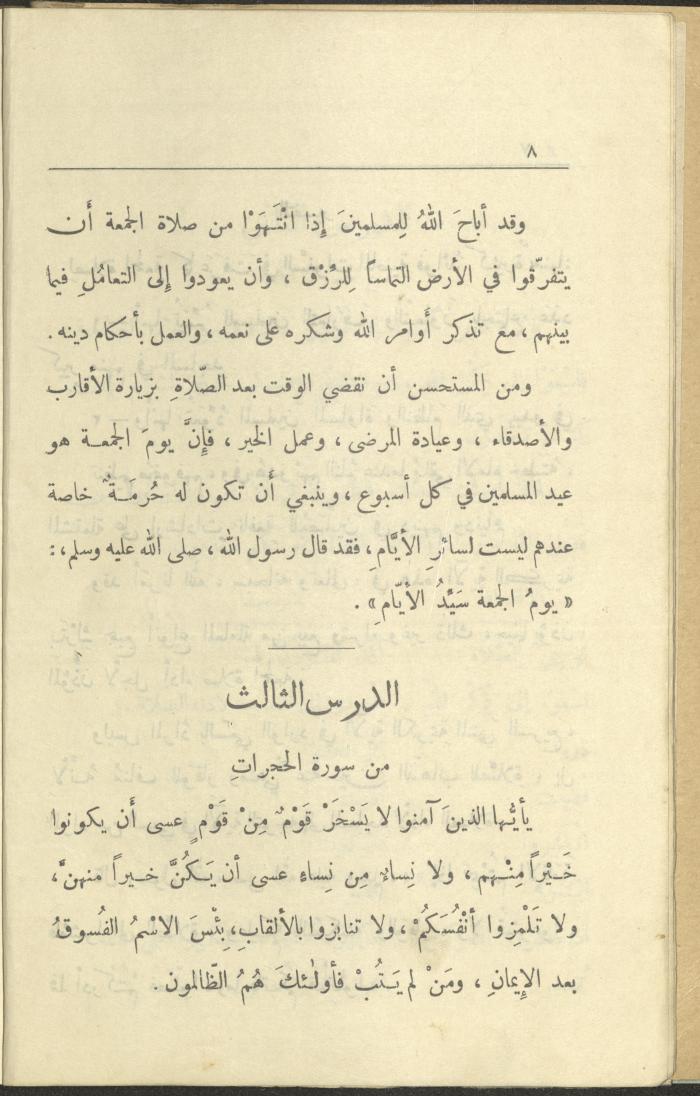 ٨
وقد أباحَ اللهُ لِلمسلمينَ إِذا انْتَهَوْا من صلاة الجمعة أَن
يتفرّقوا في الأرض التماسًا لِلرِّزْق ، وأن يعودوا إِلى التعامُلِ فيما
بينهم ، مع تذكر أَوامر الله وشكره على نعمه ، والعمل بأحكام دينه .
ومن المستحسن أن نقضي الوقت بعد الصّلاةِ بزيارة الأقارب
والأصدقاء ، وعيادة المرضى ، وعمل الخير ، فإِنَّ يومَ الجمعة هو
عيد المسلمين في كل أسبوع ، وينبغي أَن تكون له حُرمَةٌ خاصة
عندهم ليست لسائرِ الأيَّامِ ، فقد قال رسول الله ، صلى الله عليه وسلم ، :
« يومُ الجمعة سَيِّدُ الأيّامِ » .
الدرس الثالث
من سورة الحجراتِ
يأيُّها الذينَ آمنوا لا يَسْخَرْ قَوْمٌ مِنْ قَوْمٍ عسى أَن يكونوا
خَيْراً مِنْهم ، ولا نِساءٌ مِن نِساءٍ عسى أن يَكُنَّ خيراً منهنَّ ،
ولا تَلْمِزوا أنْفُسَكُمْ ، ولا تنابزوا بالألقابِ ، بِئْسَ الاسْمُ الفُسوقُ
بعد الإِيمانِ ، ومَنْ لم يَتُبْ فأولٰئكَ هُمُ الظّالمون .